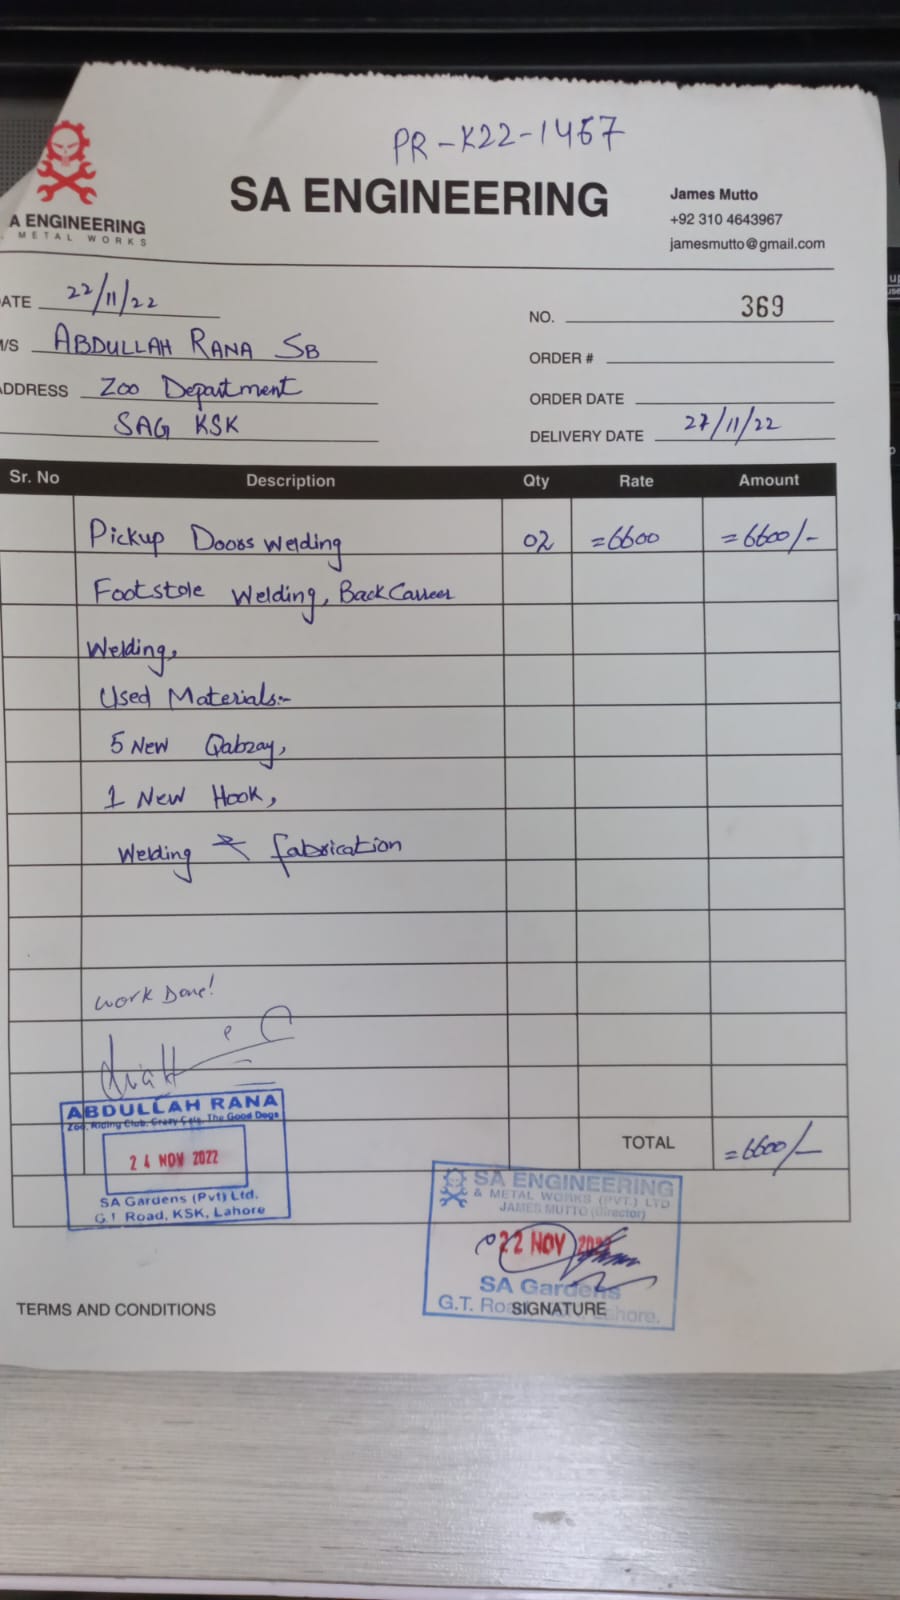 PR-K22-1467
A ENGINEERING
METAL WORKS
SA ENGINEERING
James Mutto
+92 310 4643967
jamesmutto@gmail.com
ATE 22/11/22
NO. 369
/S ABDULLAH RANA SB
ORDER #
ADDRESS Zoo Department
ORDER DATE
SAG KSK
DELIVERY DATE 27/11/22
Sr. No Description Qty Rate Amount
Pickup Doors Welding 02 =6600 =6600/-
Footstole Welding, Back Carreer
Welding,
Used Materials:-
5 New Qabzay,
1 New Hook,
Welding & fabrication
Work Done!
ABDULLAH RANA
Zoo, Riding Club, Crazy Cats, The Good Dogs
24 NOV 2022
SA Gardens (Pvt) Ltd.
G.T Road, KSK, Lahore
TOTAL =6600/-
SA ENGINEERING
& METAL WORKS (PVT.) LTD
JAMES MUTTO (Director)
22 NOV
SA Gardens
G.T. Road Lahore.
TERMS AND CONDITIONS
SIGNATURE